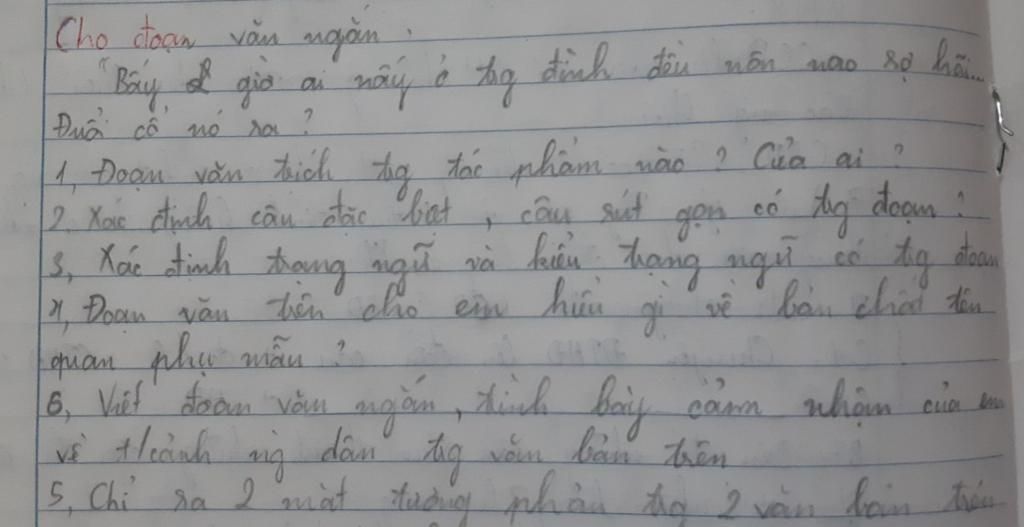 Cho đoạn văn ngắn.
"Bấy giờ ai nấy ở tg đình đều nôn nao sợ hãi...
Đuổi cổ nó ra?
1, Đoạn văn trích tg tác phẩm nào? Của ai?
2. Xác định câu đặc biệt, câu rút gọn có tg đoạn?
3, Xác định trạng ngữ và kiểu trạng ngữ có tg đoạn
4, Đoạn văn trên cho em hiểu gì về bản chất tên
quan phụ mẫu?
6, Viết đoạn văn ngắn, trình bày cảm nhận của em
về cảnh ng dân tg văn bản trên
5, Chỉ ra 2 mặt tương phản tg 2 văn bản trên